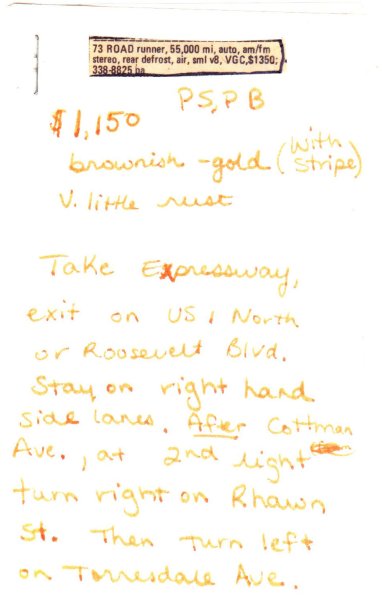 73 ROAD runner, 55,000 mi, auto, am/fm
stereo, rear defrost, air, sml v8, VGC,$1350;
338-8825 pa
PS, PB
$1,150
brownish-gold (with stripe)
V. little rust
Take Expressway,
exit on US 1 North
or Roosevelt Blvd.
Stay on right hand
side lanes. After Cottman
Ave., at 2nd light
turn right on Rhawn
St. Then turn left
on Torresdale Ave.